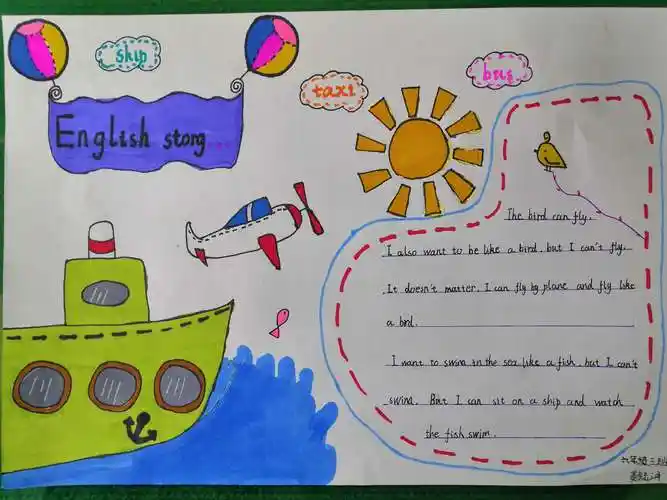 ship
taxi
bus
English stong...
The bird can fly.
I also want to be like a bird. but I can't fly.
It doesn't matter. I can fly by plane and fly like
a bird.
I want to swim in the sea like a fish. but I can't
swim. But I can sit on a ship and watch
the fish swim.
六年级三班